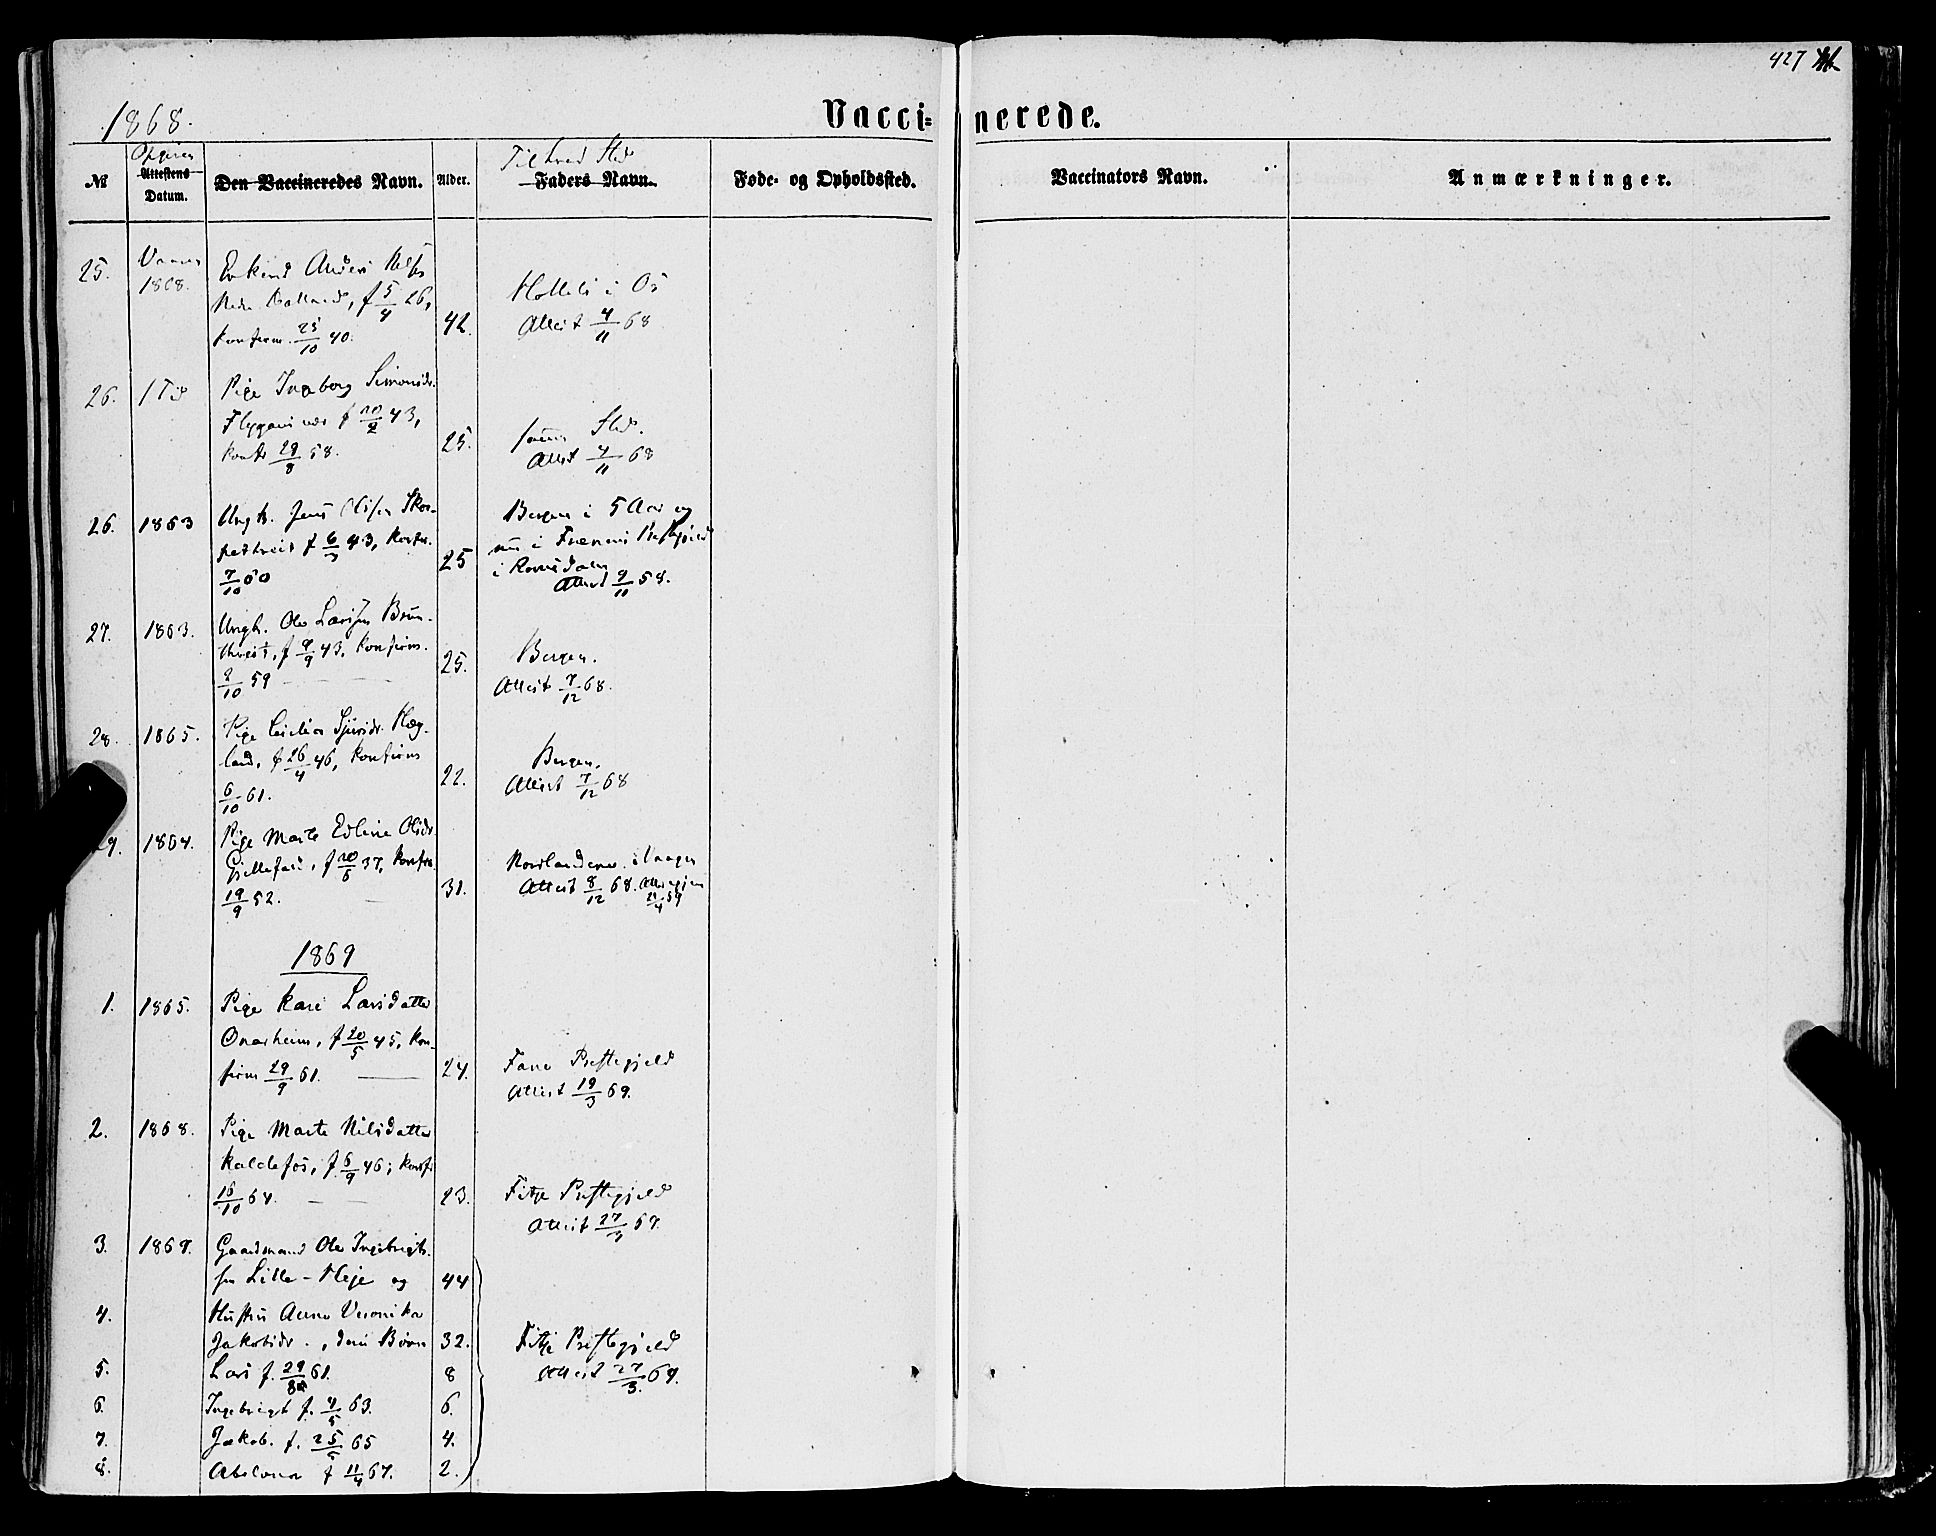 427
1868.
Vacci=nerede.
Opgiven
Til hvad Sted
№
Attestens Datum.
Den Vaccineredes Navn.
Alder.
Faders Navn.
Føde- og Opholdssted.
Vaccinators Navn.
Anmærkninger.
25.
1868.
f 5/4 26,
konfirm. 25/10 40.
42.
i Os
Attest 4/11 68
26.
Pige Ingeborg Simonsdr.
f 10/2 43,
konf. 29/8 58.
25.
samme Sted.
Attest 4/11 68
26.
1863
Ungk. Jens Olsen Skor-
f 6/3 43, konfir.
7/10 60
25
Bergen i 5 Aar og
nu i Fræness Præstegjeld
i Romsdalen
Attest 9/11 68.
27.
1863.
Ungk. Ole Larsen Brun-
f 9/9 43, konfirm.
2/10 59
25.
Bergen.
Attest 7/12 68.
28.
1865.
Pige Cecilia Sjursdr. Hæg-
land, f 26/4 46, konfirm
6/10 61.
22.
Bergen.
Attest 7/12 68
29.
1864.
Pige Marte Edline Olsdr.
Gjellefall, f 20/5 37, konfir.
19/9 52.
31.
Nordlandene i Vaagen
Attest 8/12 68.
1869
1.
1865.
Pige Kari Larsdatter
Onarheim, f 20/5 45, kon-
firm 29/9 61.
24.
Fane Præstegjeld
Attest 19/3 69.
2.
1868.
Pige Marte Nilsdatter
Kaldefos, f. 6/9 46; konf.
16/10 64.
23.
Fitje Præstegjeld
Attest 27/3 69.
3.
1869.
Gaardmand Ole Ingebrigt-
sen Lille-Fleje og
44
4.
Hustru Anna Veronika
Jakobsdr., deres Børn
32.
Fitje Præstegjeld
Attest 27/3. 69.
5.
Lars f. 29/8 61.
8
6.
Ingebrigt f. 4/5 63.
6.
7.
Jakob. f. 25/5 65
4.
8.
Abelona f 11/4 67.
2.